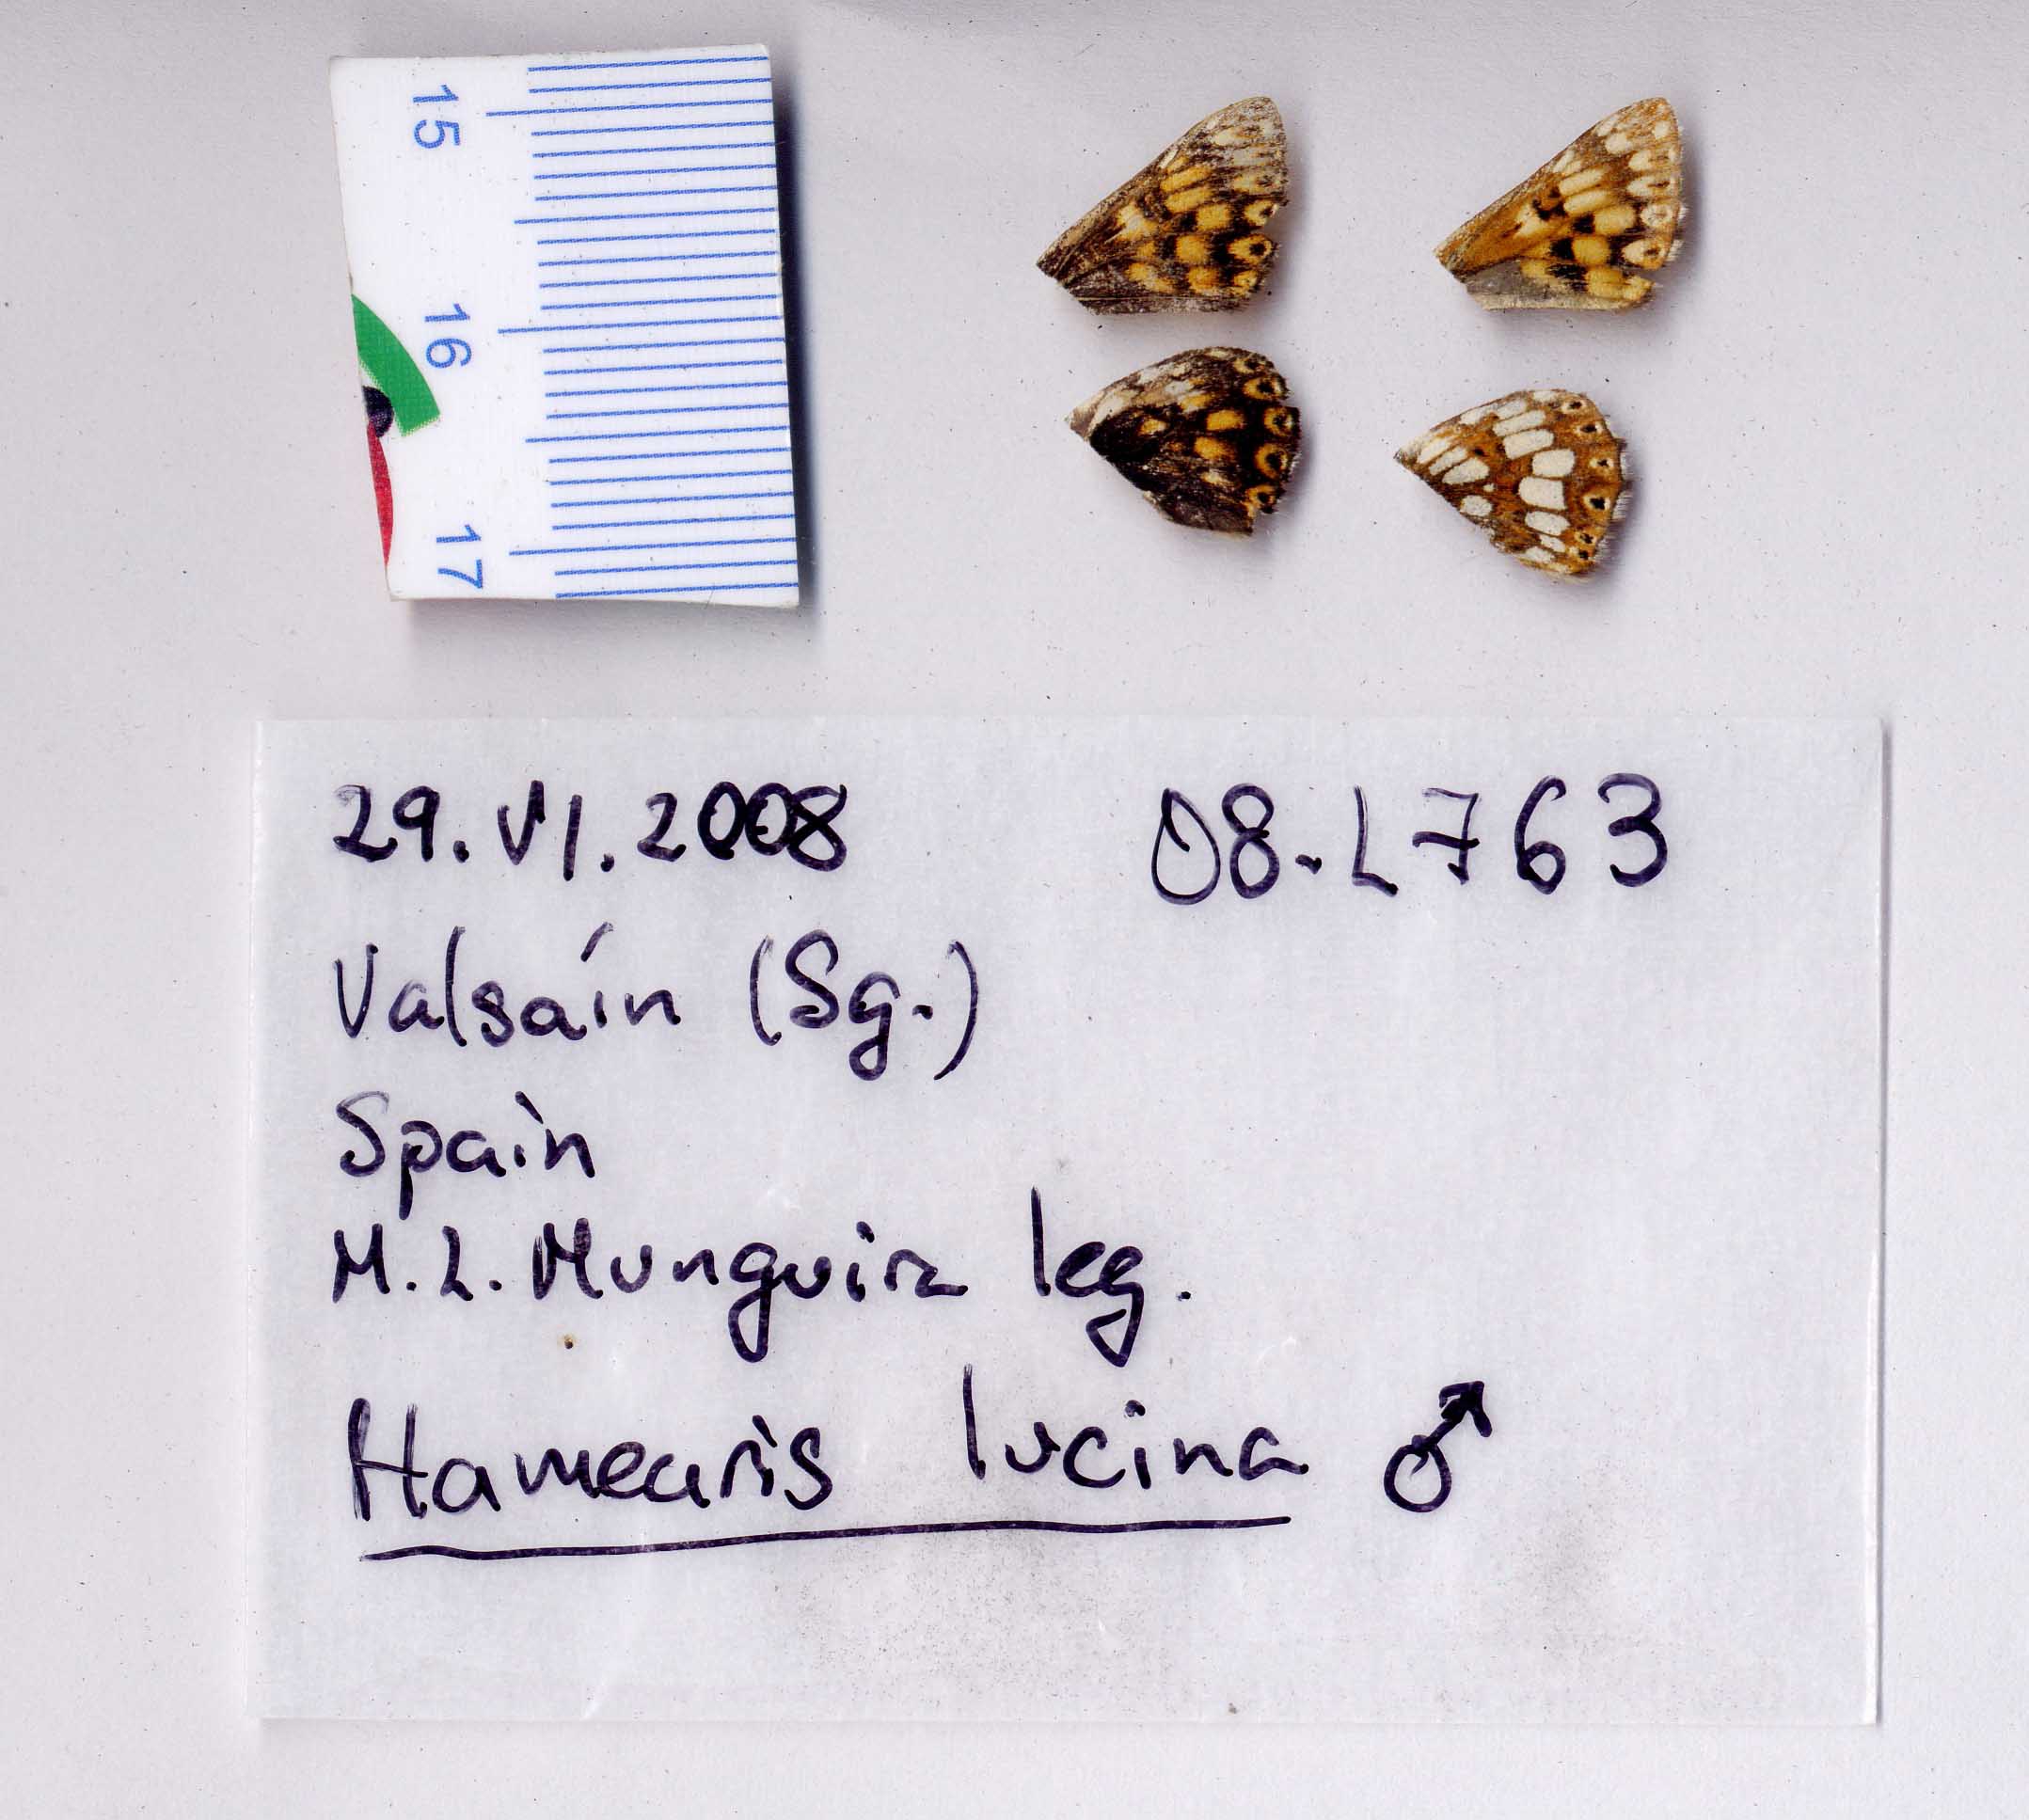 15
16
17
29.VI.2008 08-L763
Valsaín (Sg.)
Spain
M.L. Munguira leg.
Hamearis lucina ♂